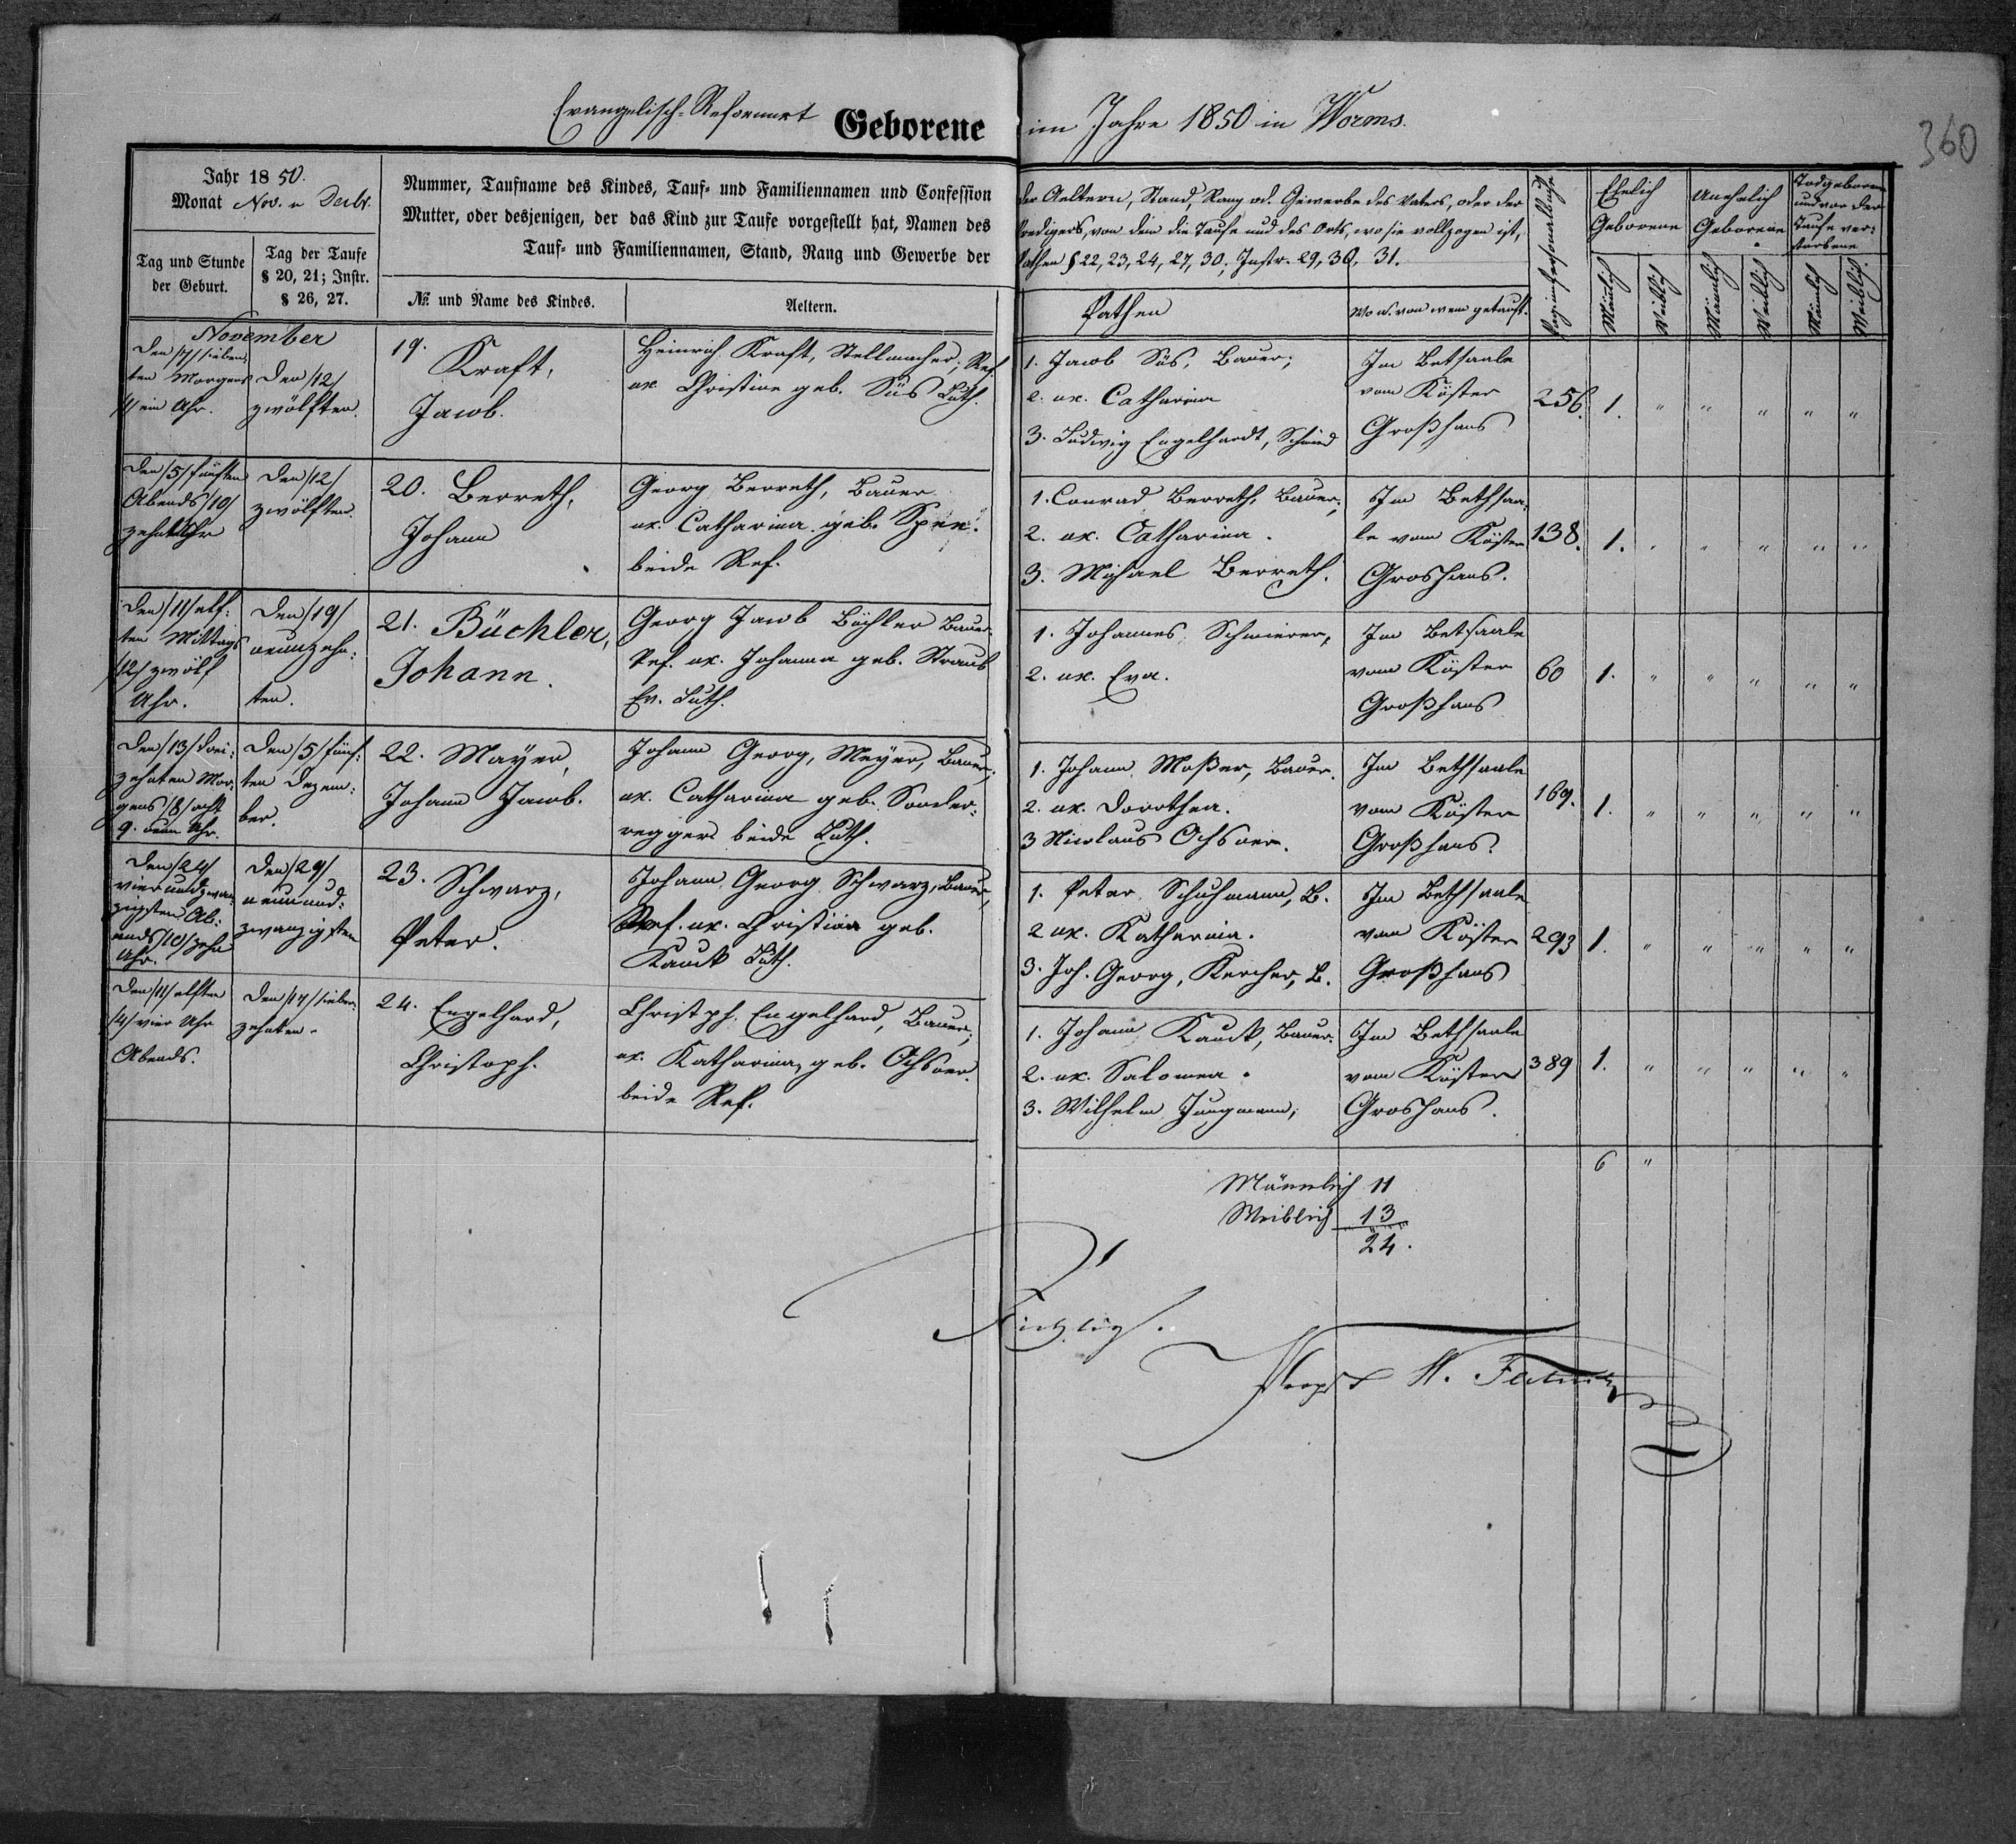 Evangelisch-Reformirt Geborene im Jahre 1850 in Worms.
360
Jahr 1850.
Monat Nov. u Decbr.
Tag und Stunde
der Geburt.
Tag der Taufe
§ 20, 21; Instr.
§ 26, 27.
Nummer, Taufname des Kindes, Tauf- und Familiennamen und Confession
Mutter, oder desjenigen, der das Kind zur Taufe vorgestellt hat, Namen des
Tauf- und Familiennamen, Stand, Rang und Gewerbe der
№ und Name des Kindes.
Aeltern.
der Aeltern, Stand, Rang od. Gewerbe des Vaters, oder der
Predigers, von dem die Taufe und des Orts, wo sie vollzogen ist,
Pathen § 22, 23, 24, 27, 30; Instr. 29, 30, 31.
Pathen
Wo u. von wem getauft.
Pagina Personalbuch
Ehelich
Geborene
Unehelich
Geborene
Todgeborene
und vor der
Taufe ver-
storbene
Männlich
Weiblich
Männlich
Weiblich
Männlich
Weiblich
November
Den /7/ sieben-
ten Morgens
/1/ ein Uhr.
Den /12/
zwölften.
19. Kraft,
Jacob.
Heinrich Kraft, Stellmacher, Ref.
ux. Christine geb. Süs Luth.
1. Jacob Süs, Bauer;
2. ux. Catharina
3. Ludwig Engelhardt, Schmied
Im Betsaale
vom Küster
Großhans
256. 1. " " " " "
Den /5/ fünften
Abends /10/
zehn Uhr
Den /12/
zwölften.
20. Berreth,
Johann
Georg Berreth, Bauer
ux. Catharina geb. Speer.
beide Ref.
1. Conrad Berreth, Bauer;
2. ux. Catharina.
3. Michael Berreth.
Im Bethsaa-
le vom Küster
Groshans.
138. 1. " " " " "
Den /11/ elf-
ten Mittags
/12/ zwölf
Uhr.
Den /19/
neunzehn-
ten.
21. Büchler,
Johann.
Georg Jacob Büchler Bauer
Ref. ux. Johanna geb. Straub
Ev. Luth.
1. Johannes Schmierer,
2. ux. Eva.
Im Betsaale
vom Küster
Großhans
60 1. " " " " "
Den /13/ drei-
zehnten Mor-
gens /8/ acht
9. neun Uhr.
Den /5/ fünf-
ten Dezem-
ber.
22. Mayer,
Johann Jacob.
Johann Georg, Meyer, Bauer;
ux. Catharina geb. Sonder-
regger beide Luth.
1. Johann Moßer, Bauer.
2. ux. Dorothea.
3 Nicolaus Ochsner.
Im Bethsaale
vom Küster
Großhans.
169. 1. " " " " "
Den /24/
vierundzwan-
zigsten Ab-
ends /10/ zehn
Uhr.
Den /29/
neunund-
zwanzigsten
23. Schwarz,
Peter.
Johann Georg Schwarz, Bauer,
Ref. ux. Christina geb.
Kauck Luth.
1. Peter Schuhmann, B.
2 ux. Katharina.
3. Joh. Georg, Kercher, B.
Im Bethsaale
vom Küster
Großhans
293 1. " " " " "
Den /11/ elften
/4/ vier Uhr
Abends.
Den /17/ sieben-
zehnten.
24. Engelhard,
Christoph.
Christoph. Engelhard, Bauer;
ux. Katharina, geb. Ochsner.
beide Ref.
1. Johann Kauck, Bauer.
2. ux. Salomea.
3. Wilhelm Jungmann,
Im Bethsaale
vom Küster
Groshans.
389 1. " " " " "
6 "
Männlich 11
Weiblich 13
24.
Richtig.
Propst